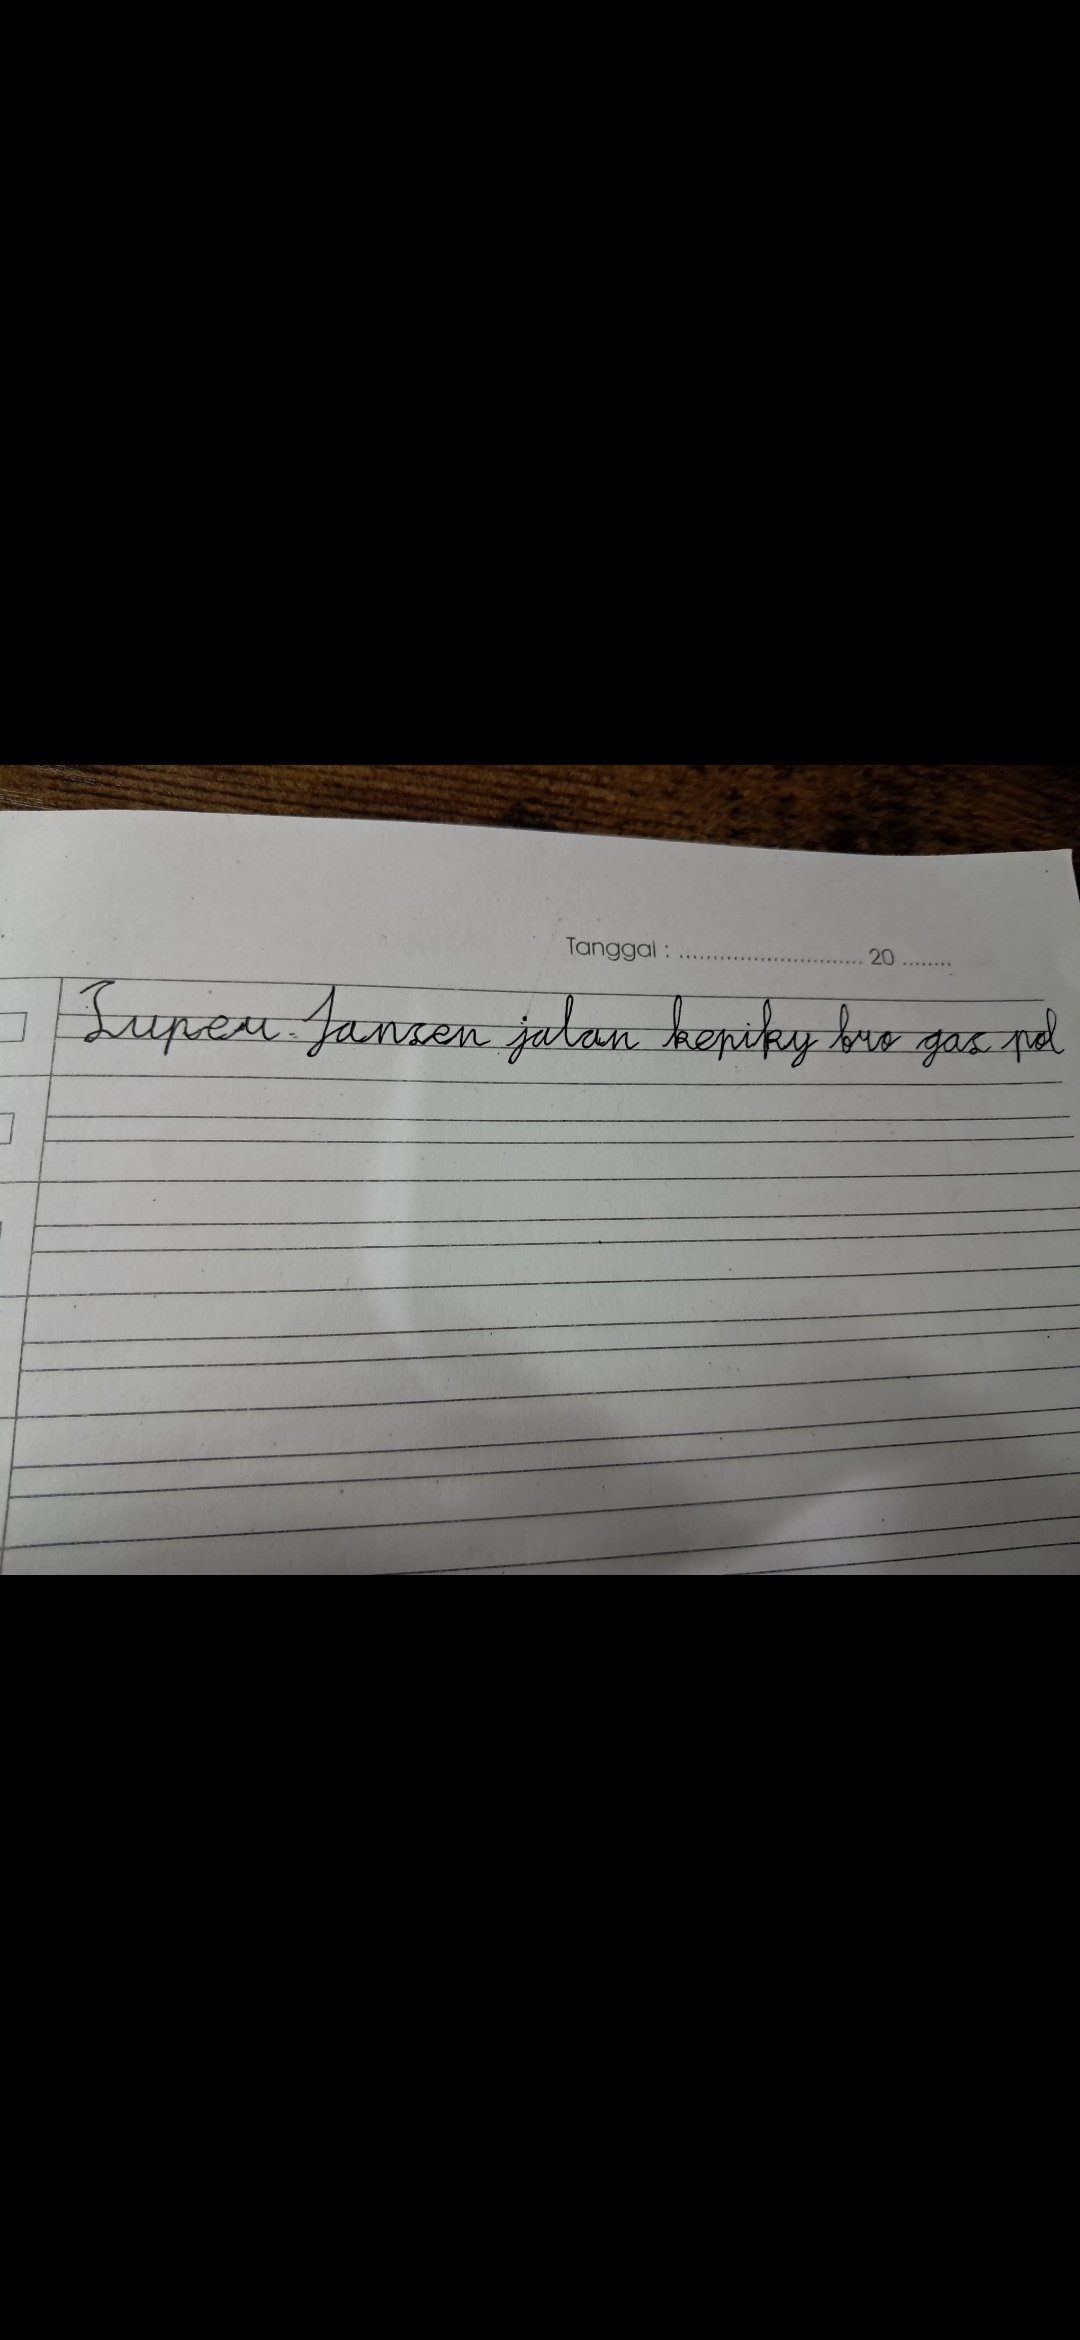 Tanggal : .............................. 20 ........
Super Jansen jalan kepiky bro gas pol